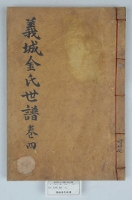 義城金氏世譜 卷四